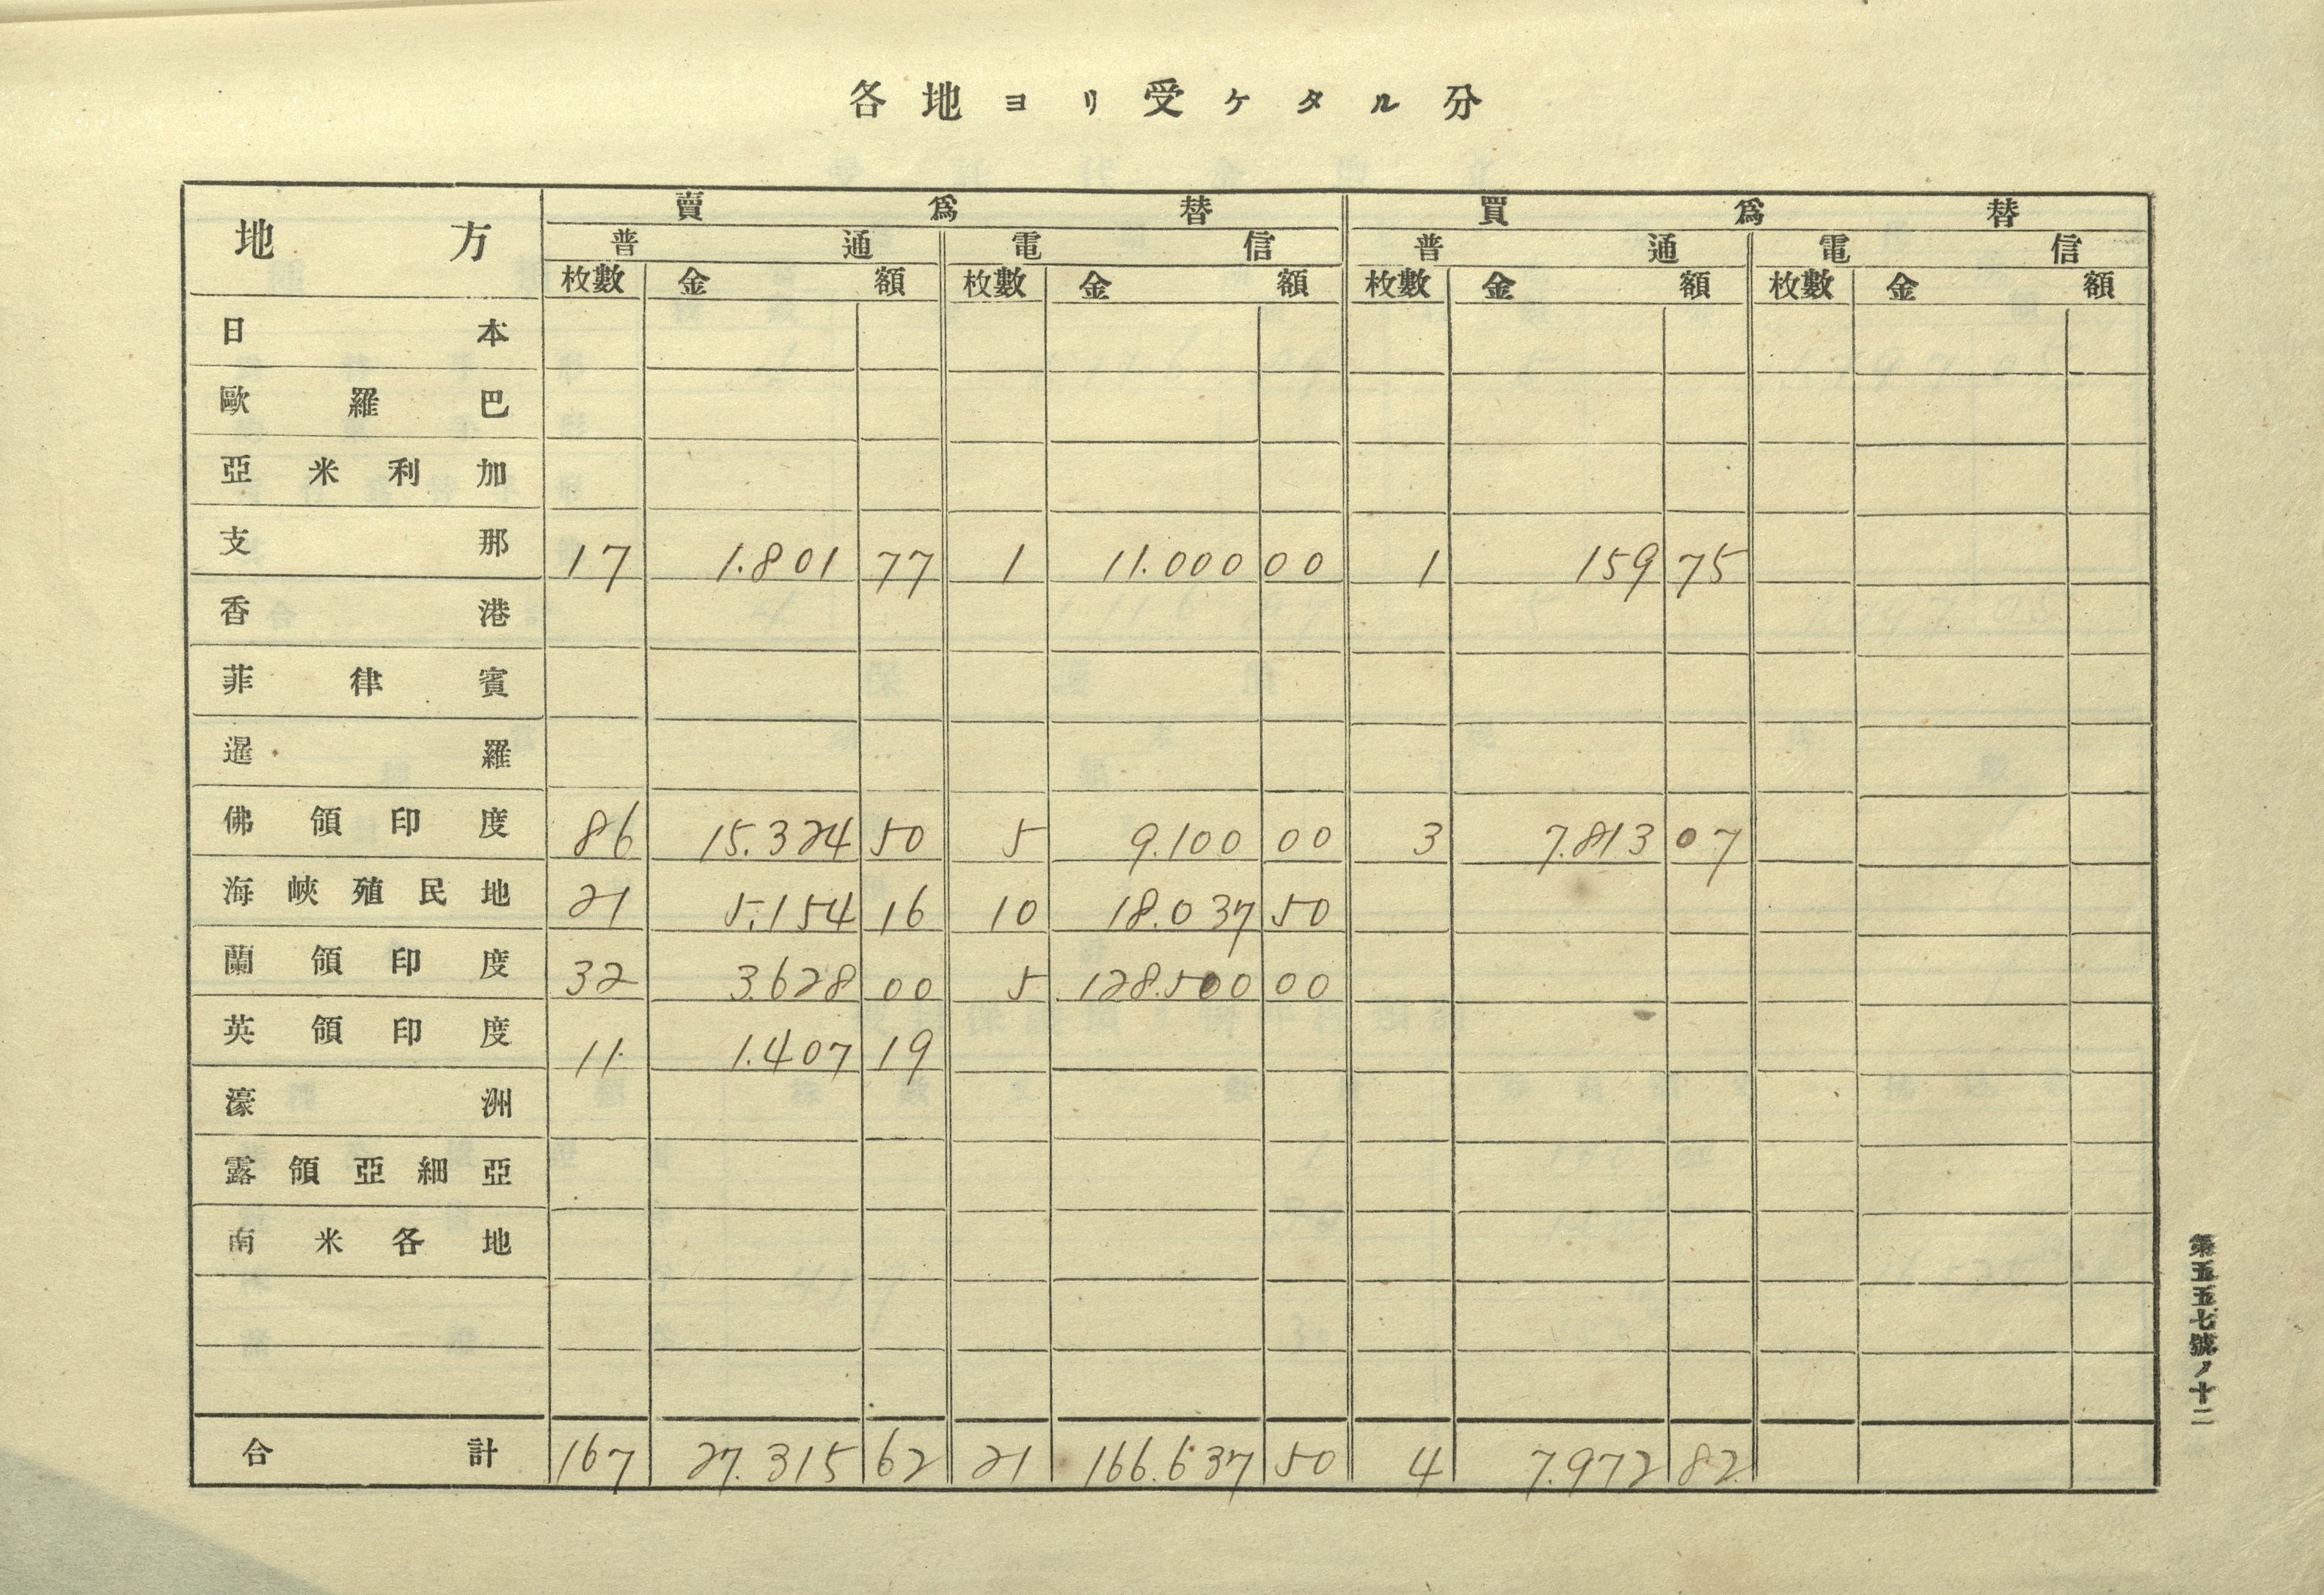 各地ヨリ受ケタル分
地方 賣爲替 買爲替
普通 電信 普通 電信
枚數 金額 枚數 金額 枚數 金額 枚數 金額
日本
歐羅巴
亞米利加
支那 17 1.801 77 1 11.000 00 1 159 75
香港
菲律賓
暹羅
佛領印度 86 15.324 50 5 9.100 00 3 7.813 07
海峽殖民地 21 5.154 16 10 18.037 50
蘭領印度 32 3.628 00 5 128.500 00
英領印度 11 1.407 19
濠洲
露領亞細亞
南米各地
合計 167 27.315 62 21 166.637 50 4 7.972 82
第五五七號ノ十二